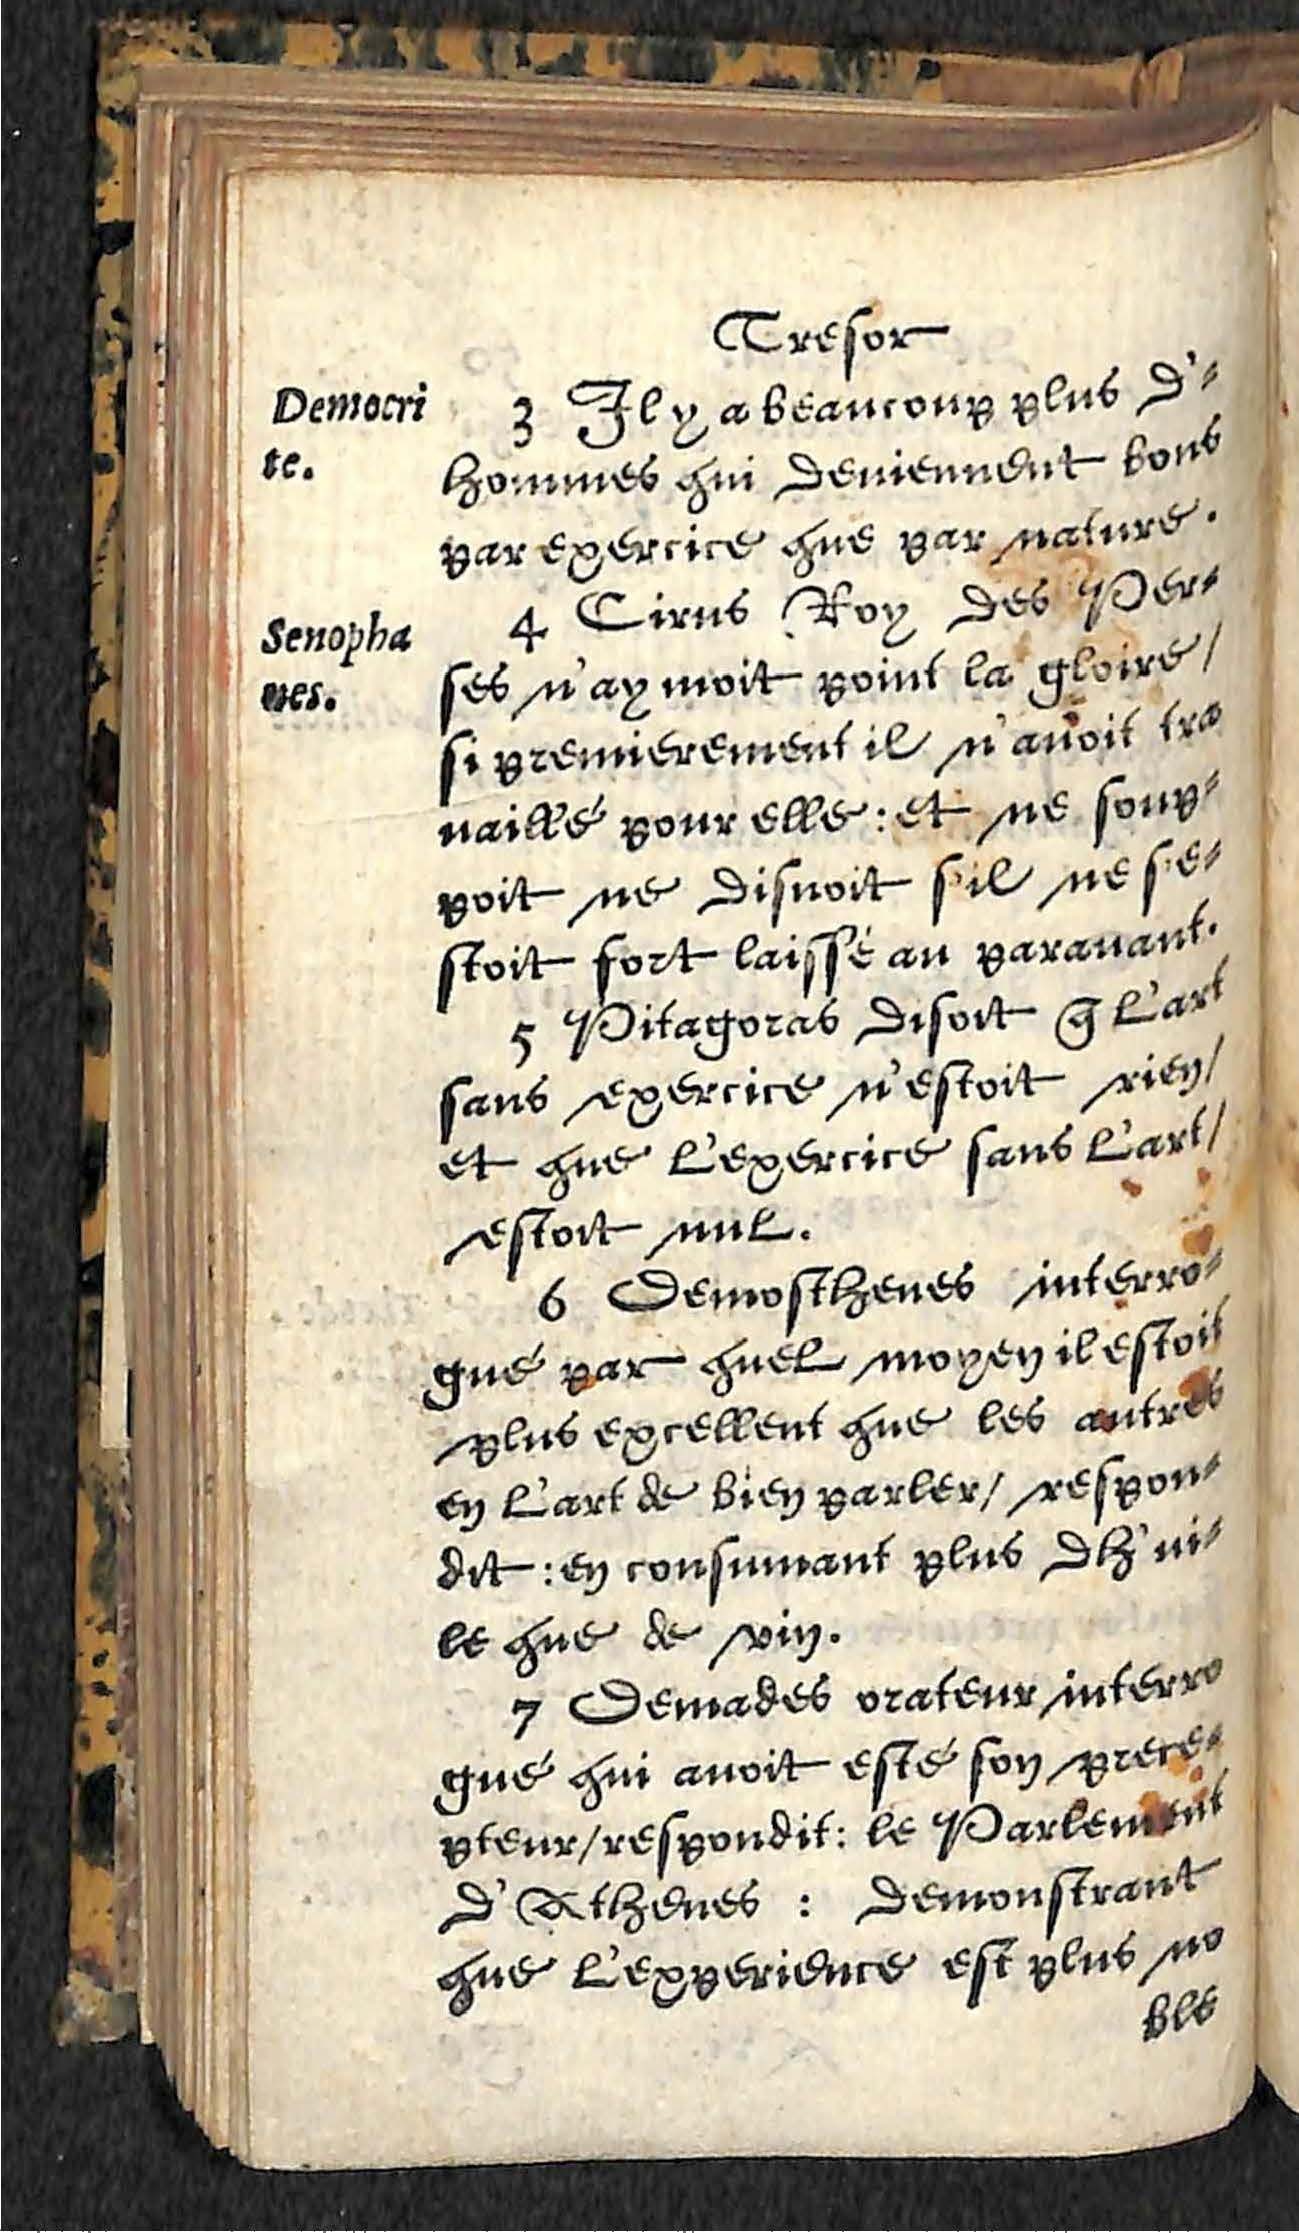 Tresor
Democri
te.
3 Il y a beaucoup plus d'-
hommes qui deuiennent bons
par exercice que par nature.
Senopha
nes.
4 Cirus Roy des Per-
ses n'aymoit point la gloire/
si premierement il n'auoit tra
uaillé pour elle : et ne soup-
poit ne disnoit s'il ne s'e-
stoit fort laissé au parauant.
5 Pitagoras disoit q̃ l'art
sans exercice n'estoit rien/
et que l'exercice sans l'art/
estoit nul.
6 Demosthenes interro-
gué par quel moyen il estoit
plus excellent que les autres
en l'art de bien parler/ respon-
dit : en consumant plus dh'ui-
le que de vin.
7 Demades orateur interro
gué qui auoit esté son prece-
pteur/respondit : le Parlement
d'Athenes : demonstrant
que l'experience est plus no
ble